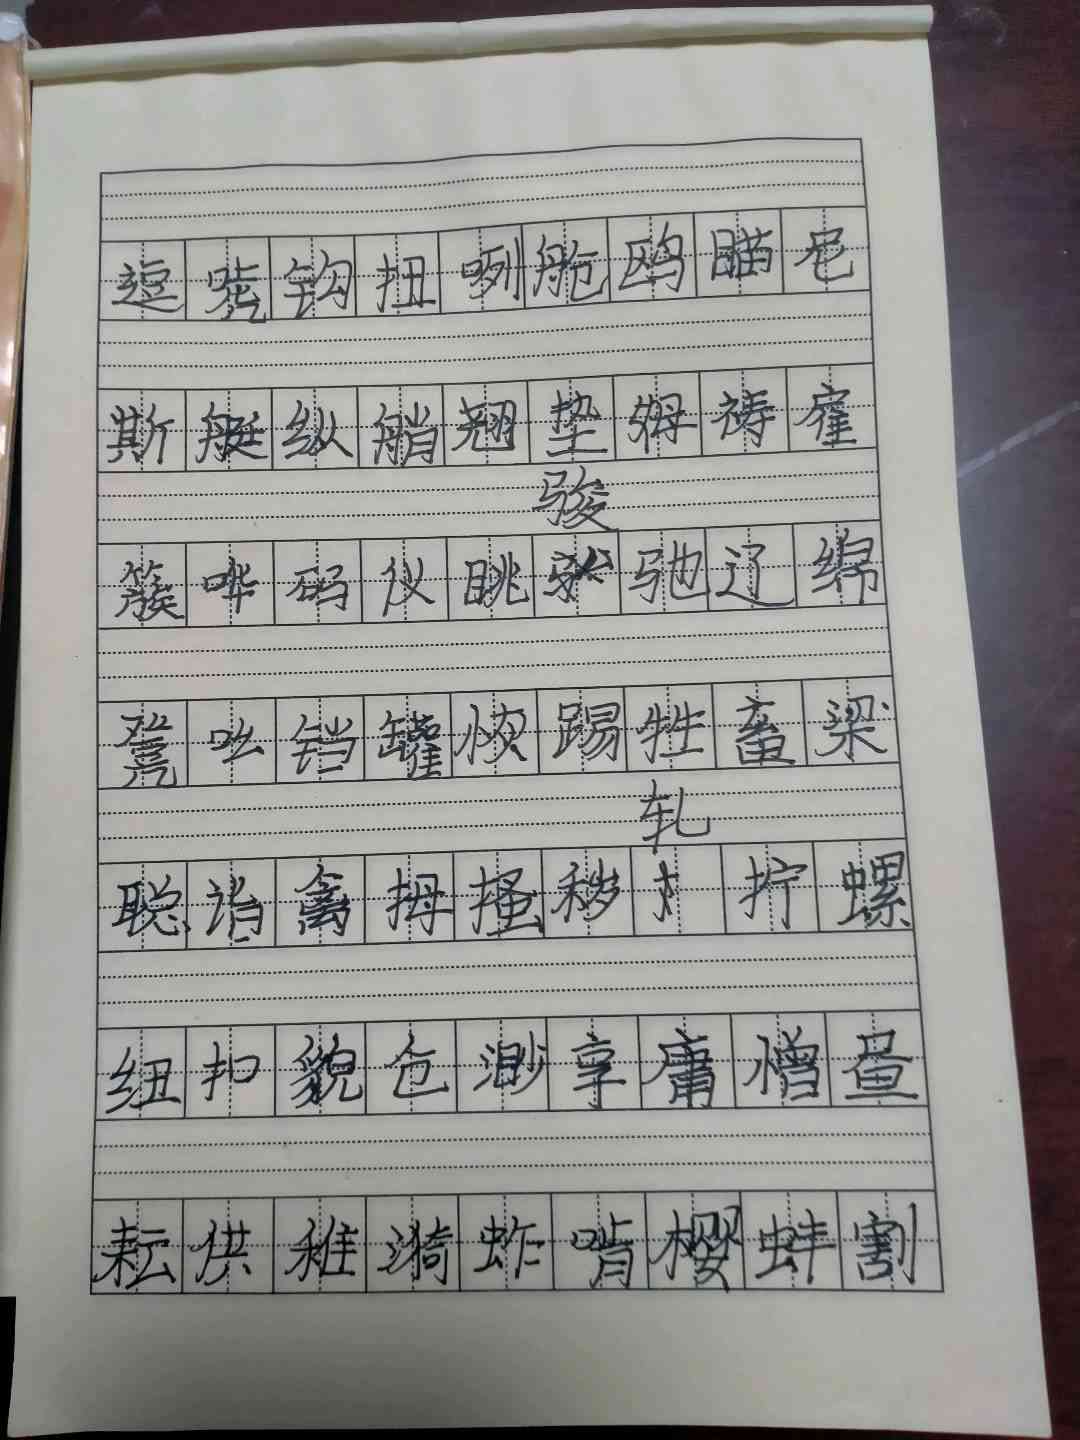 逗 唬 钩 扭 咧 舱 鸥 瞄
斯 艇 纵 艄 翘 垫 姆 祷 雇
骏
簇 哗 码 仪 眺 驰 辽 绵
凳 吆 铛 罐 恢 踢 牲 畜 梁
轧
聪 诣 禽 拇 搔 秽 拧 螺
纽 扣 貌 仓 渺 享 庸 憎 昼
耘 供 稚 漪 蚱 啃 樱 蚌 割